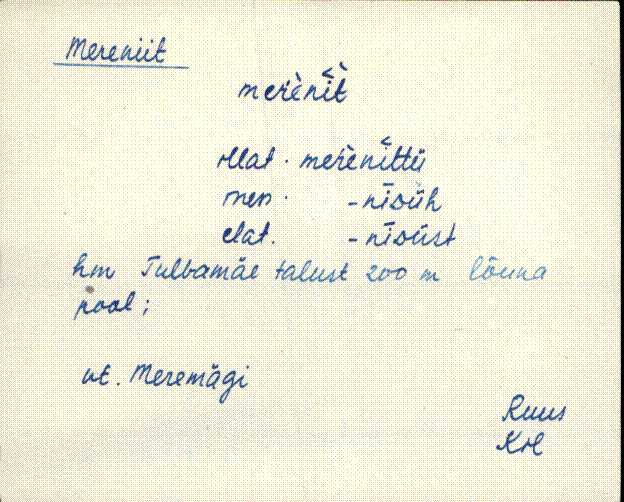 Mereniit
merènì̆t
illat. merènĭttü
iness. -nīsüh
elat. -nīsüst
hm Tulbamäe talust 200 m lõuna
pool;
vt. Meremägi
Ruus
KM